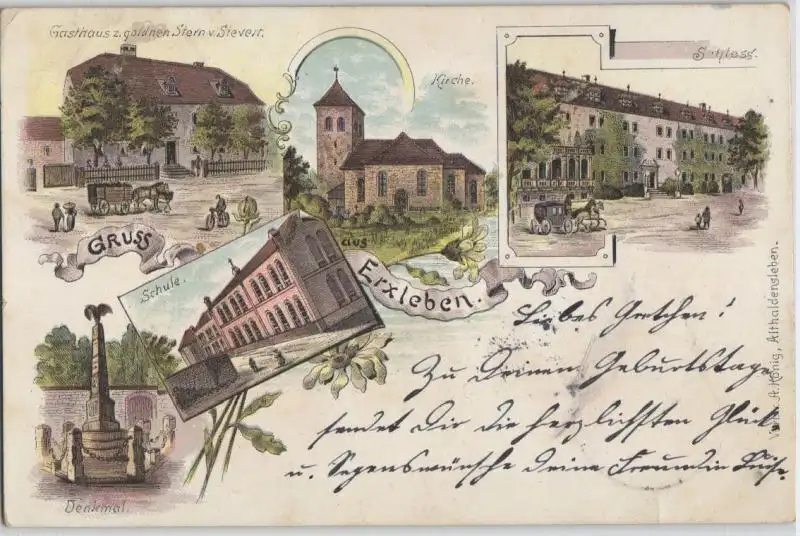 Gasthaus z. goldnen Stern v. Sievert.
Kirche.
Schloss.
Gruss
aus
Erxleben.
Schule.
Denkmal.
A. König, Althaldensleben.
Liebes Gretchen!
Zu Deinem Geburtstage
sendet Dir die herzlichsten Glück
u. Segenswünsche deine Freundin Luise.